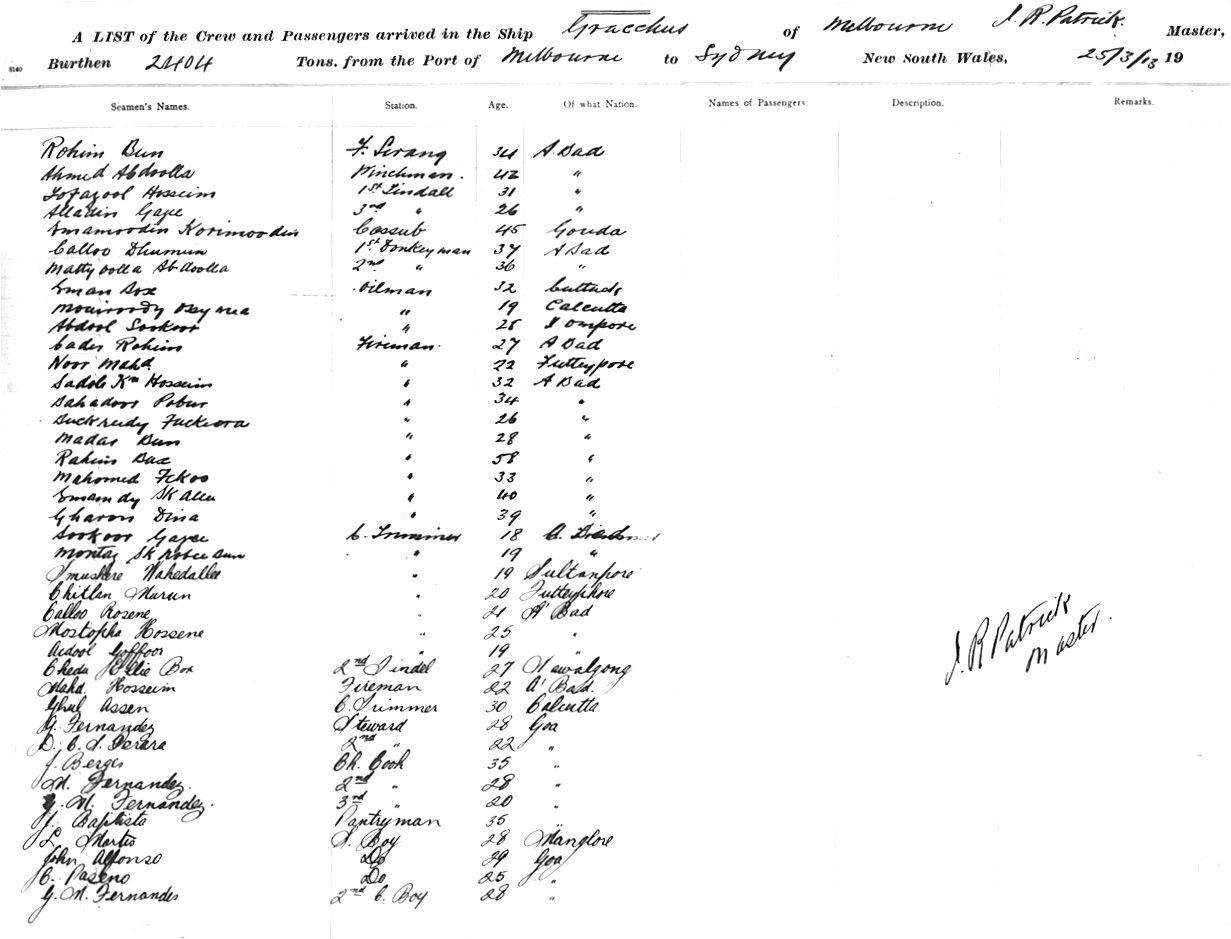 A LIST of the Crew and Passengers arrived in the Ship Gracchus of Melbourne J. R. Patrick. Master,
8140 Burthen 2404 Tons, from the Port of Melbourne to Sydney New South Wales, 25/3/13 19
Seamen's Names. Station. Age. Of what Nation. Names of Passengers. Description. Remarks.
Rohim Bun F. Serang 34 A. Bad
Ahmed Abdoolla Winchman. 42 "
Tofazool Hosseim 1st Tindall 31 "
Alladin Gazee 3rd " 26 "
Emamoodin Korimoodin Cassub 45 Gouda
Calloo Dhumun 1st Donkeyman 37 A Bad
Mattyoolla Abdoolla 2nd " 36 "
Eman Box Oilman 32 Cuttack
" 19 Calcutta
Abdool Sookoor " 25
Cader Rohim Fireman. 27 A Bad
Noor Mahd. " 22 Futteypore
Sadob Kn Hosseim " 32 A Bad
Bahadoor " 34 "
" 26 "
Madar Bun " 28 "
Rahim Bax " 58 "
Mahomed " 33 "
Emamdy Sk " 40 "
Dina " 39 "
Sookoor Gazee C. Trimmer 18
Montaz Sk " 19 "
Wahedallee " 19 Sultanpore
" 20
Calloo " 21 A' Bad
Mostopha Hossene " 25 "
Goffoor " 19
Box 2nd Tindel 27
Mahd. Hosseim Fireman 22 A' Bad.
Assen C. Trimmer 30 Calcutta
Fernandez Steward 28 Goa
D. C. S. Perara 2nd " 22 "
J. Berges Ch. Cook 35 "
M. Fernandez. 2nd " 28 "
M. Fernandez. 3rd " 20 "
J. Baptista Pantryman 35 "
L. Martis S. Boy 28 Manglore
John Alfonso Do 29 Goa
C. Paseno Do 25 "
G. M. Fernandes 2nd C. Boy 28 "
J. R Patrick
Master.